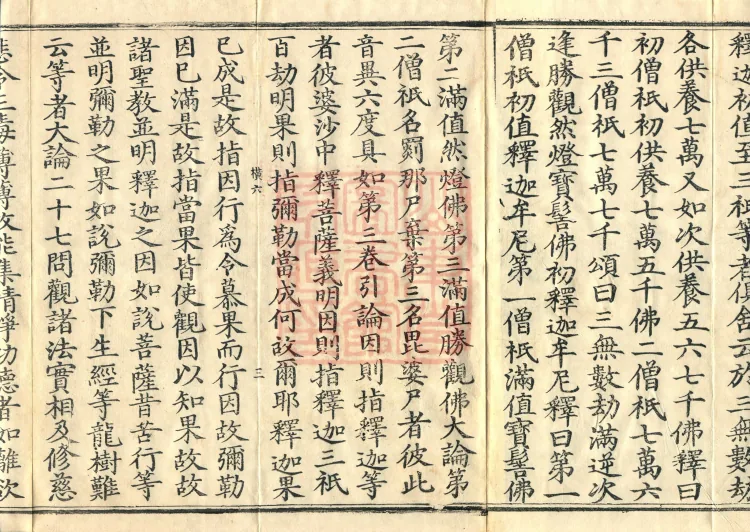 釋迦初值至三祇等者俱舍云於三無數劫
各供養七萬又如次供養五六七千佛釋曰
初僧祇初供養七萬五千佛二僧祇七萬六
千三僧祇七萬七千頌曰三無數劫滿逆次
逢勝觀然燈寶髻佛初釋迦牟尼釋曰第一
僧祇初值釋迦牟尼第一僧祇滿值寶髻佛
第二滿值然燈佛第三滿值勝觀佛大論第
二僧祇名罽那尸棄第三名毘婆尸者彼此
音異六度具如第三卷引論因則指釋迦等
者彼婆沙中釋菩薩義明因則指釋迦三祇
百劫明果則指彌勒當成何故爾耶釋迦果
橫六 三
已成是故指因行爲令慕果而行因故彌勒
因已滿是故指當果皆使觀因以知果故故
諸聖教並明釋迦之因如說菩薩昔苦行等
並明彌勒之果如說彌勒下生經等龍樹難
云等者大論二十七問觀諸法實相及修慈
悲令三毒薄薄故能集清淨功德者如離欲